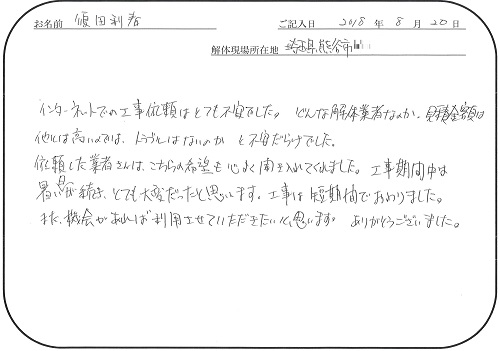 お名前 田利春
ご記入日 2018年 8月 20日
解体現場所在地 埼玉県熊谷市
インターネットでの工事依頼はとても不安でした。どんな解体業者なのか、見積金額は
他とは高いのでは、トラブルはないのか と不安だらけでした。
依頼した業者さんは、こちらの希望も心よく聞き入れてくれました。工事期間中は
暑い日が続き、とても大変だったと思います。工事は短期間でおわりました。
また、機会があれば利用させていただきたいと思います。ありがとうございました。